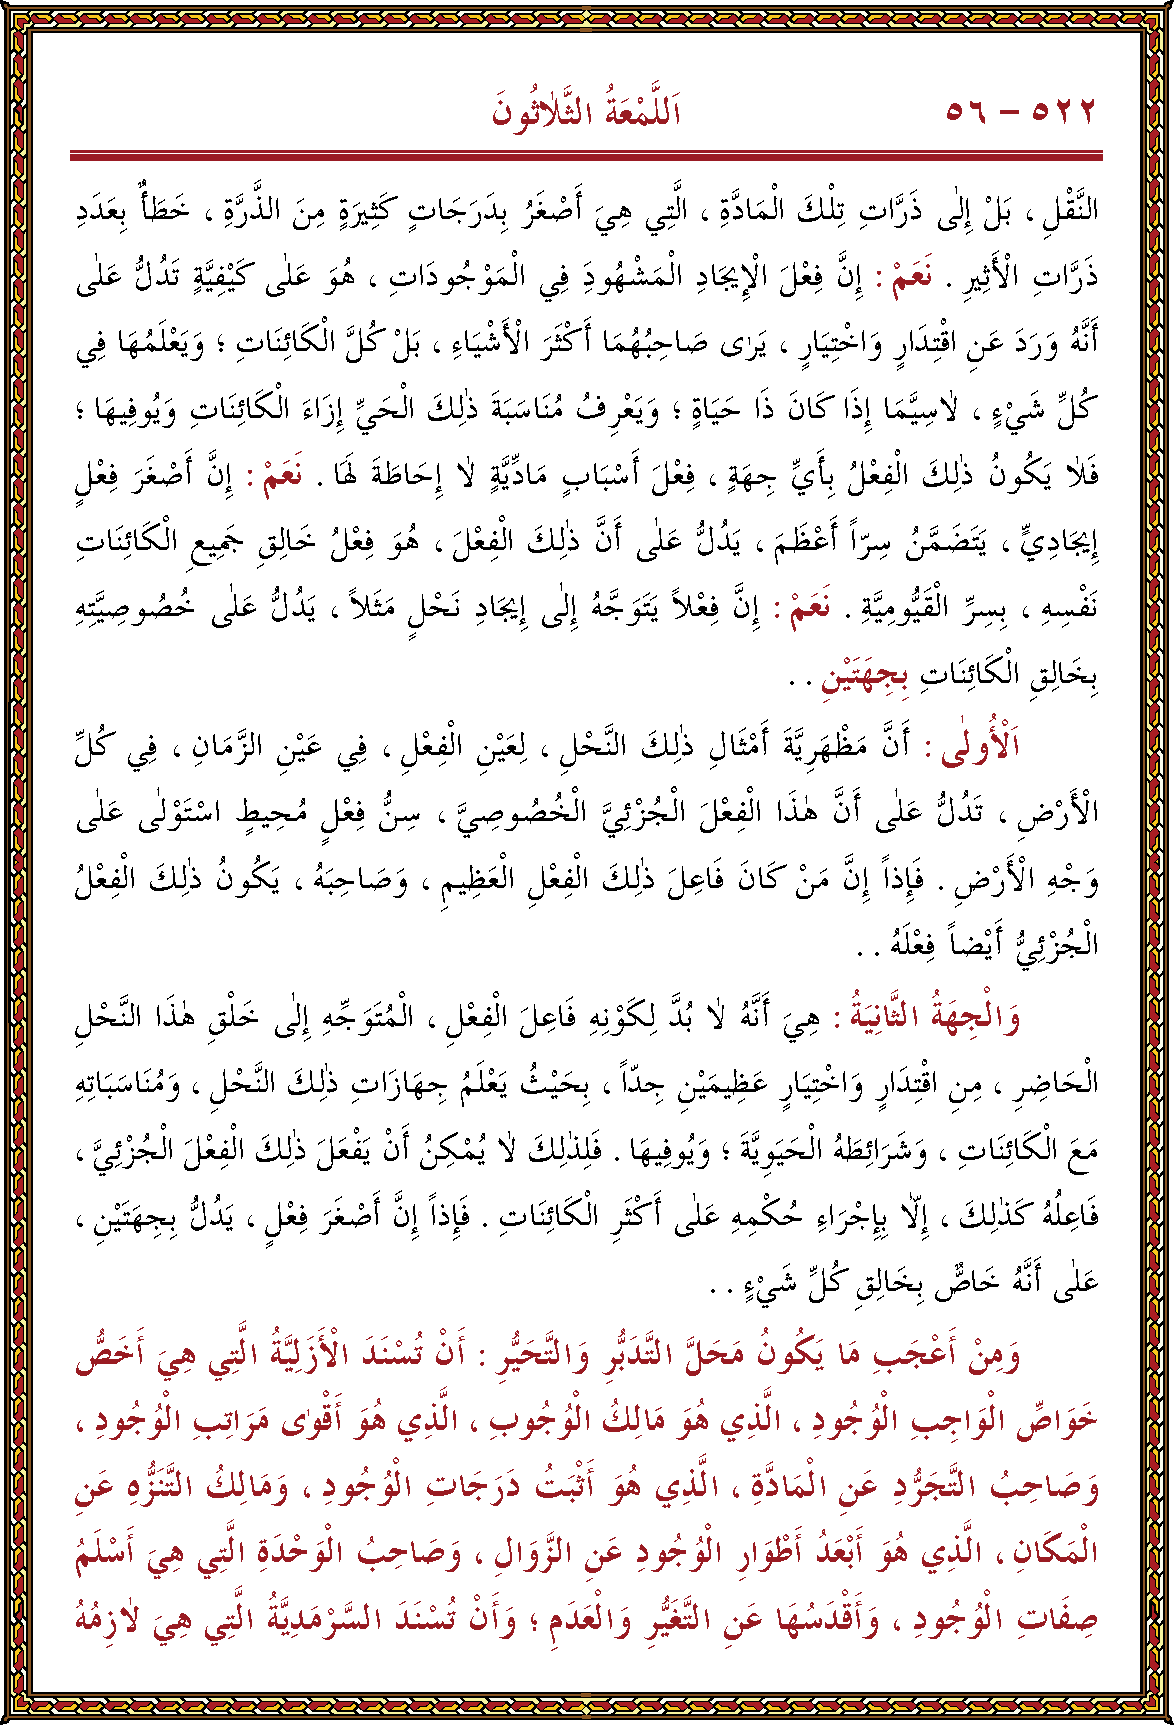 ٥٢٢ – ٥٦ اَللَّمْعَةُ الثَّلَاثُونَ
النَّقْلِ ، بَلْ إِلٰى ذَرَّاتِ تِلْكَ الْمَادَّةِ ، الَّتِي هِيَ أَصْغَرُ بِدَرَجَاتٍ كَثِيرَةٍ مِنَ الذَّرَّةِ ، خَطَأٌ بِعَدَدِ
ذَرَّاتِ الْأَثِيرِ . نَعَمْ : إِنَّ فِعْلَ الْإِيجَادِ الْمَشْهُودِ فِي الْمَوْجُودَاتِ ، هُوَ عَلٰى كَيْفِيَّةٍ تَدُلُّ عَلٰى
أَنَّهُ وَرَدَ عَنِ اقْتِدَارٍ وَاخْتِيَارٍ ، يَرٰى صَاحِبُهُمَا أَكْثَرَ الْأَشْيَاءِ ، بَلْ كُلَّ الْكَائِنَاتِ ؛ وَيَعْلَمُهَا فِي
كُلِّ شَيْءٍ ، لَاسِيَّمَا إِذَا كَانَ ذَا حَيَاةٍ ؛ وَيَعْرِفُ مُنَاسَبَةَ ذٰلِكَ الْحَيِّ إِزَاءَ الْكَائِنَاتِ وَيُوفِيهَا ؛
فَلَا يَكُونُ ذٰلِكَ الْفِعْلُ بِأَيِّ جِهَةٍ ، فِعْلَ أَسْبَابٍ مَادِّيَّةٍ لَا إِحَاطَةَ لَهَا . نَعَمْ : إِنَّ أَصْغَرَ فِعْلٍ
إِيجَادِيٍّ ، يَتَضَمَّنُ سِرّاً أَعْظَمَ ، يَدُلُّ عَلٰى أَنَّ ذٰلِكَ الْفِعْلَ ، هُوَ فِعْلُ خَالِقِ جَمِيعِ الْكَائِنَاتِ
نَفْسِهِ ، بِسِرِّ الْقَيُّومِيَّةِ . نَعَمْ : إِنَّ فِعْلاً يَتَوَجَّهُ إِلٰى إِيجَادِ نَحْلٍ مَثَلاً ، يَدُلُّ عَلٰى خُصُوصِيَّتِهِ
بِخَالِقِ الْكَائِنَاتِ بِجِهَتَيْنِ . .
اَلْأُولٰى : أَنَّ مَظْهَرِيَّةَ أَمْثَالِ ذٰلِكَ النَّحْلِ ، لِعَيْنِ الْفِعْلِ ، فِي عَيْنِ الزَّمَانِ ، فِي كُلِّ
الْأَرْضِ ، تَدُلُّ عَلٰى أَنَّ هٰذَا الْفِعْلَ الْجُزْئِيَّ الْخُصُوصِيَّ ، سِنُّ فِعْلٍ مُحِيطٍ اسْتَوْلٰى عَلٰى
وَجْهِ الْأَرْضِ . فَإِذاً إِنَّ مَنْ كَانَ فَاعِلَ ذٰلِكَ الْفِعْلِ الْعَظِيمِ ، وَصَاحِبَهُ ، يَكُونُ ذٰلِكَ الْفِعْلُ
الْجُزْئِيُّ أَيْضاً فِعْلَهُ . .
وَالْجِهَةُ الثَّانِيَةُ : هِيَ أَنَّهُ لَا بُدَّ لِكَوْنِهِ فَاعِلَ الْفِعْلِ ، الْمُتَوَجِّهِ إِلٰى خَلْقِ هٰذَا النَّحْلِ
الْحَاضِرِ ، مِنِ اقْتِدَارٍ وَاخْتِيَارٍ عَظِيمَيْنِ جِدّاً ، بِحَيْثُ يَعْلَمُ جِهَازَاتِ ذٰلِكَ النَّحْلِ ، وَمُنَاسَبَاتِهِ
مَعَ الْكَائِنَاتِ ، وَشَرَائِطَهُ الْحَيَوِيَّةَ ؛ وَيُوفِيهَا . فَلِذٰلِكَ لَا يُمْكِنُ أَنْ يَفْعَلَ ذٰلِكَ الْفِعْلَ الْجُزْئِيَّ ،
فَاعِلُهُ كَذٰلِكَ ، إِلَّا بِإِجْرَاءِ حُكْمِهِ عَلٰى أَكْثَرِ الْكَائِنَاتِ . فَإِذاً إِنَّ أَصْغَرَ فِعْلٍ ، يَدُلُّ بِجِهَتَيْنِ ،
عَلٰى أَنَّهُ خَاصٌّ بِخَالِقِ كُلِّ شَيْءٍ . .
وَمِنْ أَعْجَبِ مَا يَكُونُ مَحَلَّ التَّدَبُّرِ وَالتَّحَيُّرِ : أَنْ تُسْنَدَ الْأَزَلِيَّةُ الَّتِي هِيَ أَخَصُّ
خَوَاصِّ الْوَاجِبِ الْوُجُودِ ، الَّذِي هُوَ مَالِكُ الْوُجُوبِ ، الَّذِي هُوَ أَقْوٰى مَرَاتِبِ الْوُجُودِ ،
وَصَاحِبُ التَّجَرُّدِ عَنِ الْمَادَّةِ ، الَّذِي هُوَ أَثْبَتُ دَرَجَاتِ الْوُجُودِ ، وَمَالِكُ التَّنَزُّهِ عَنِ
الْمَكَانِ ، الَّذِي هُوَ أَبْعَدُ أَطْوَارِ الْوُجُودِ عَنِ الزَّوَالِ ، وَصَاحِبُ الْوَحْدَةِ الَّتِي هِيَ أَسْلَمُ
صِفَاتِ الْوُجُودِ ، وَأَقْدَسُهَا عَنِ التَّغَيُّرِ وَالْعَدَمِ ؛ وَأَنْ تُسْنَدَ السَّرْمَدِيَّةُ الَّتِي هِيَ لَازِمُهُ